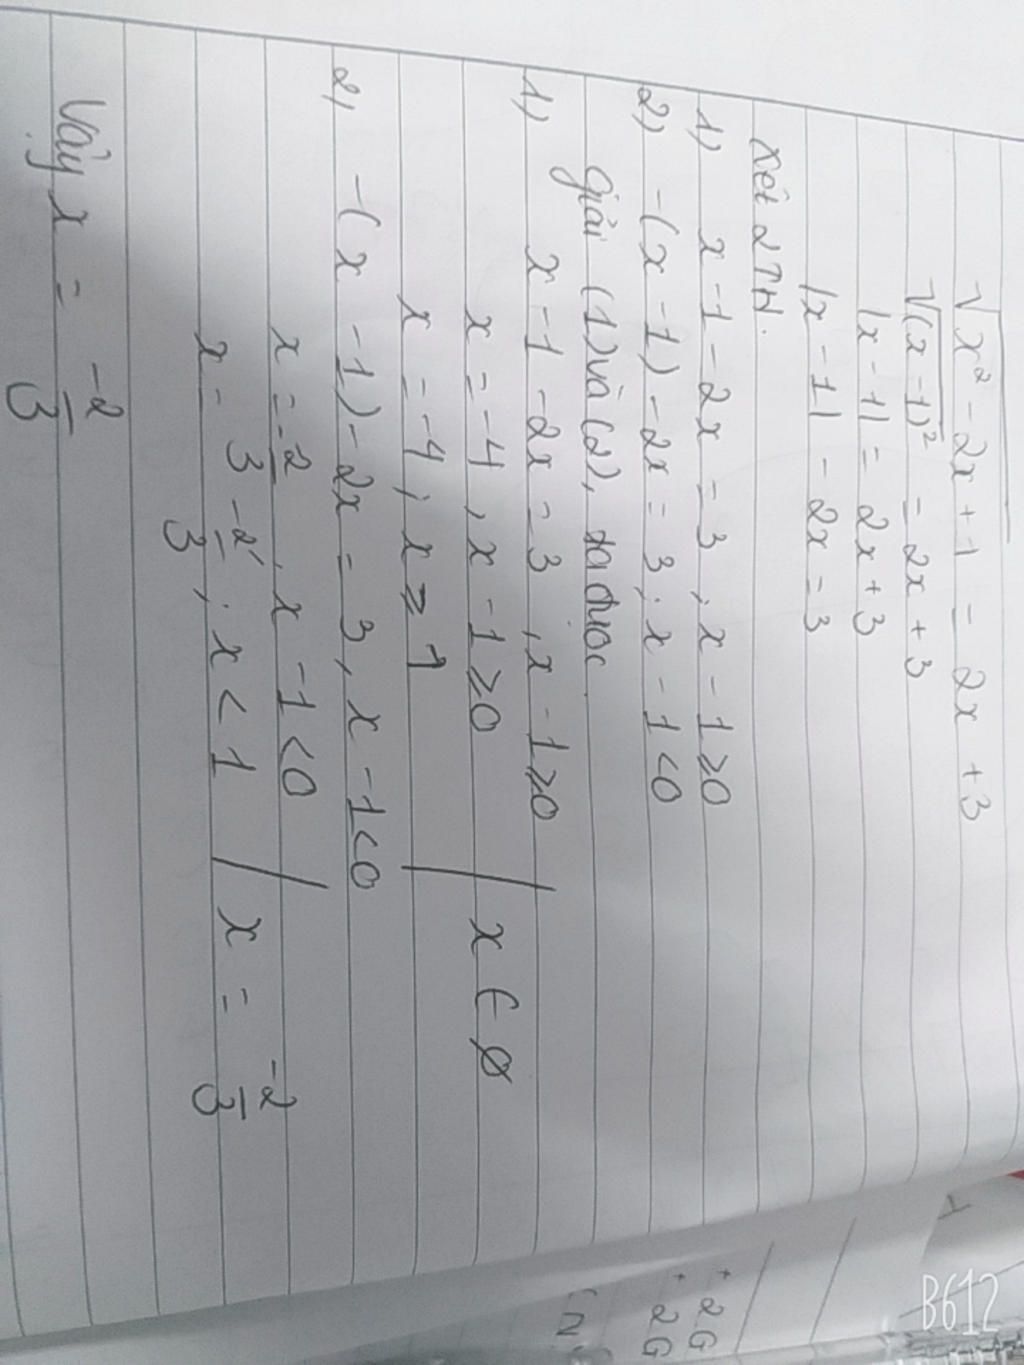 √x² - 2x + 1 = 2x + 3
√(x - 1)² = 2x + 3
|x - 1| = 2x + 3
|x - 1| - 2x = 3
Xét 2 TH.
1) x - 1 - 2x = 3, x - 1 ≥ 0
2) -(x - 1) - 2x = 3; x - 1 < 0
giải (1) và (2), ta được
1) x - 1 - 2x = 3, x - 1 ≥ 0
x = -4, x - 1 ≥ 0 | x ∈ ∅
x = -4; x ≥ 1
2) -(x - 1) - 2x = 3, x - 1 < 0
x = -2/3, x - 1 < 0 | x = -2/3
x = -2/3; x < 1
Vậy x = -2/3
B612
+ 2G
+ 2G